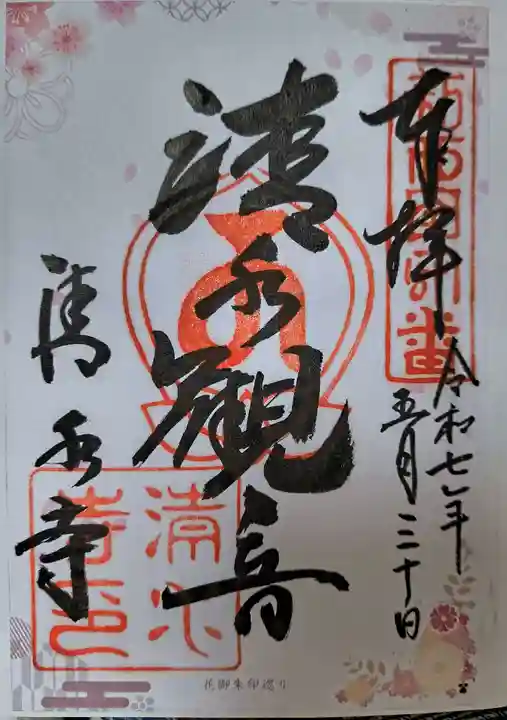 奉拝
令和七年
五月三十日
清水観音
清水寺
清水寺印
花御朱印巡り